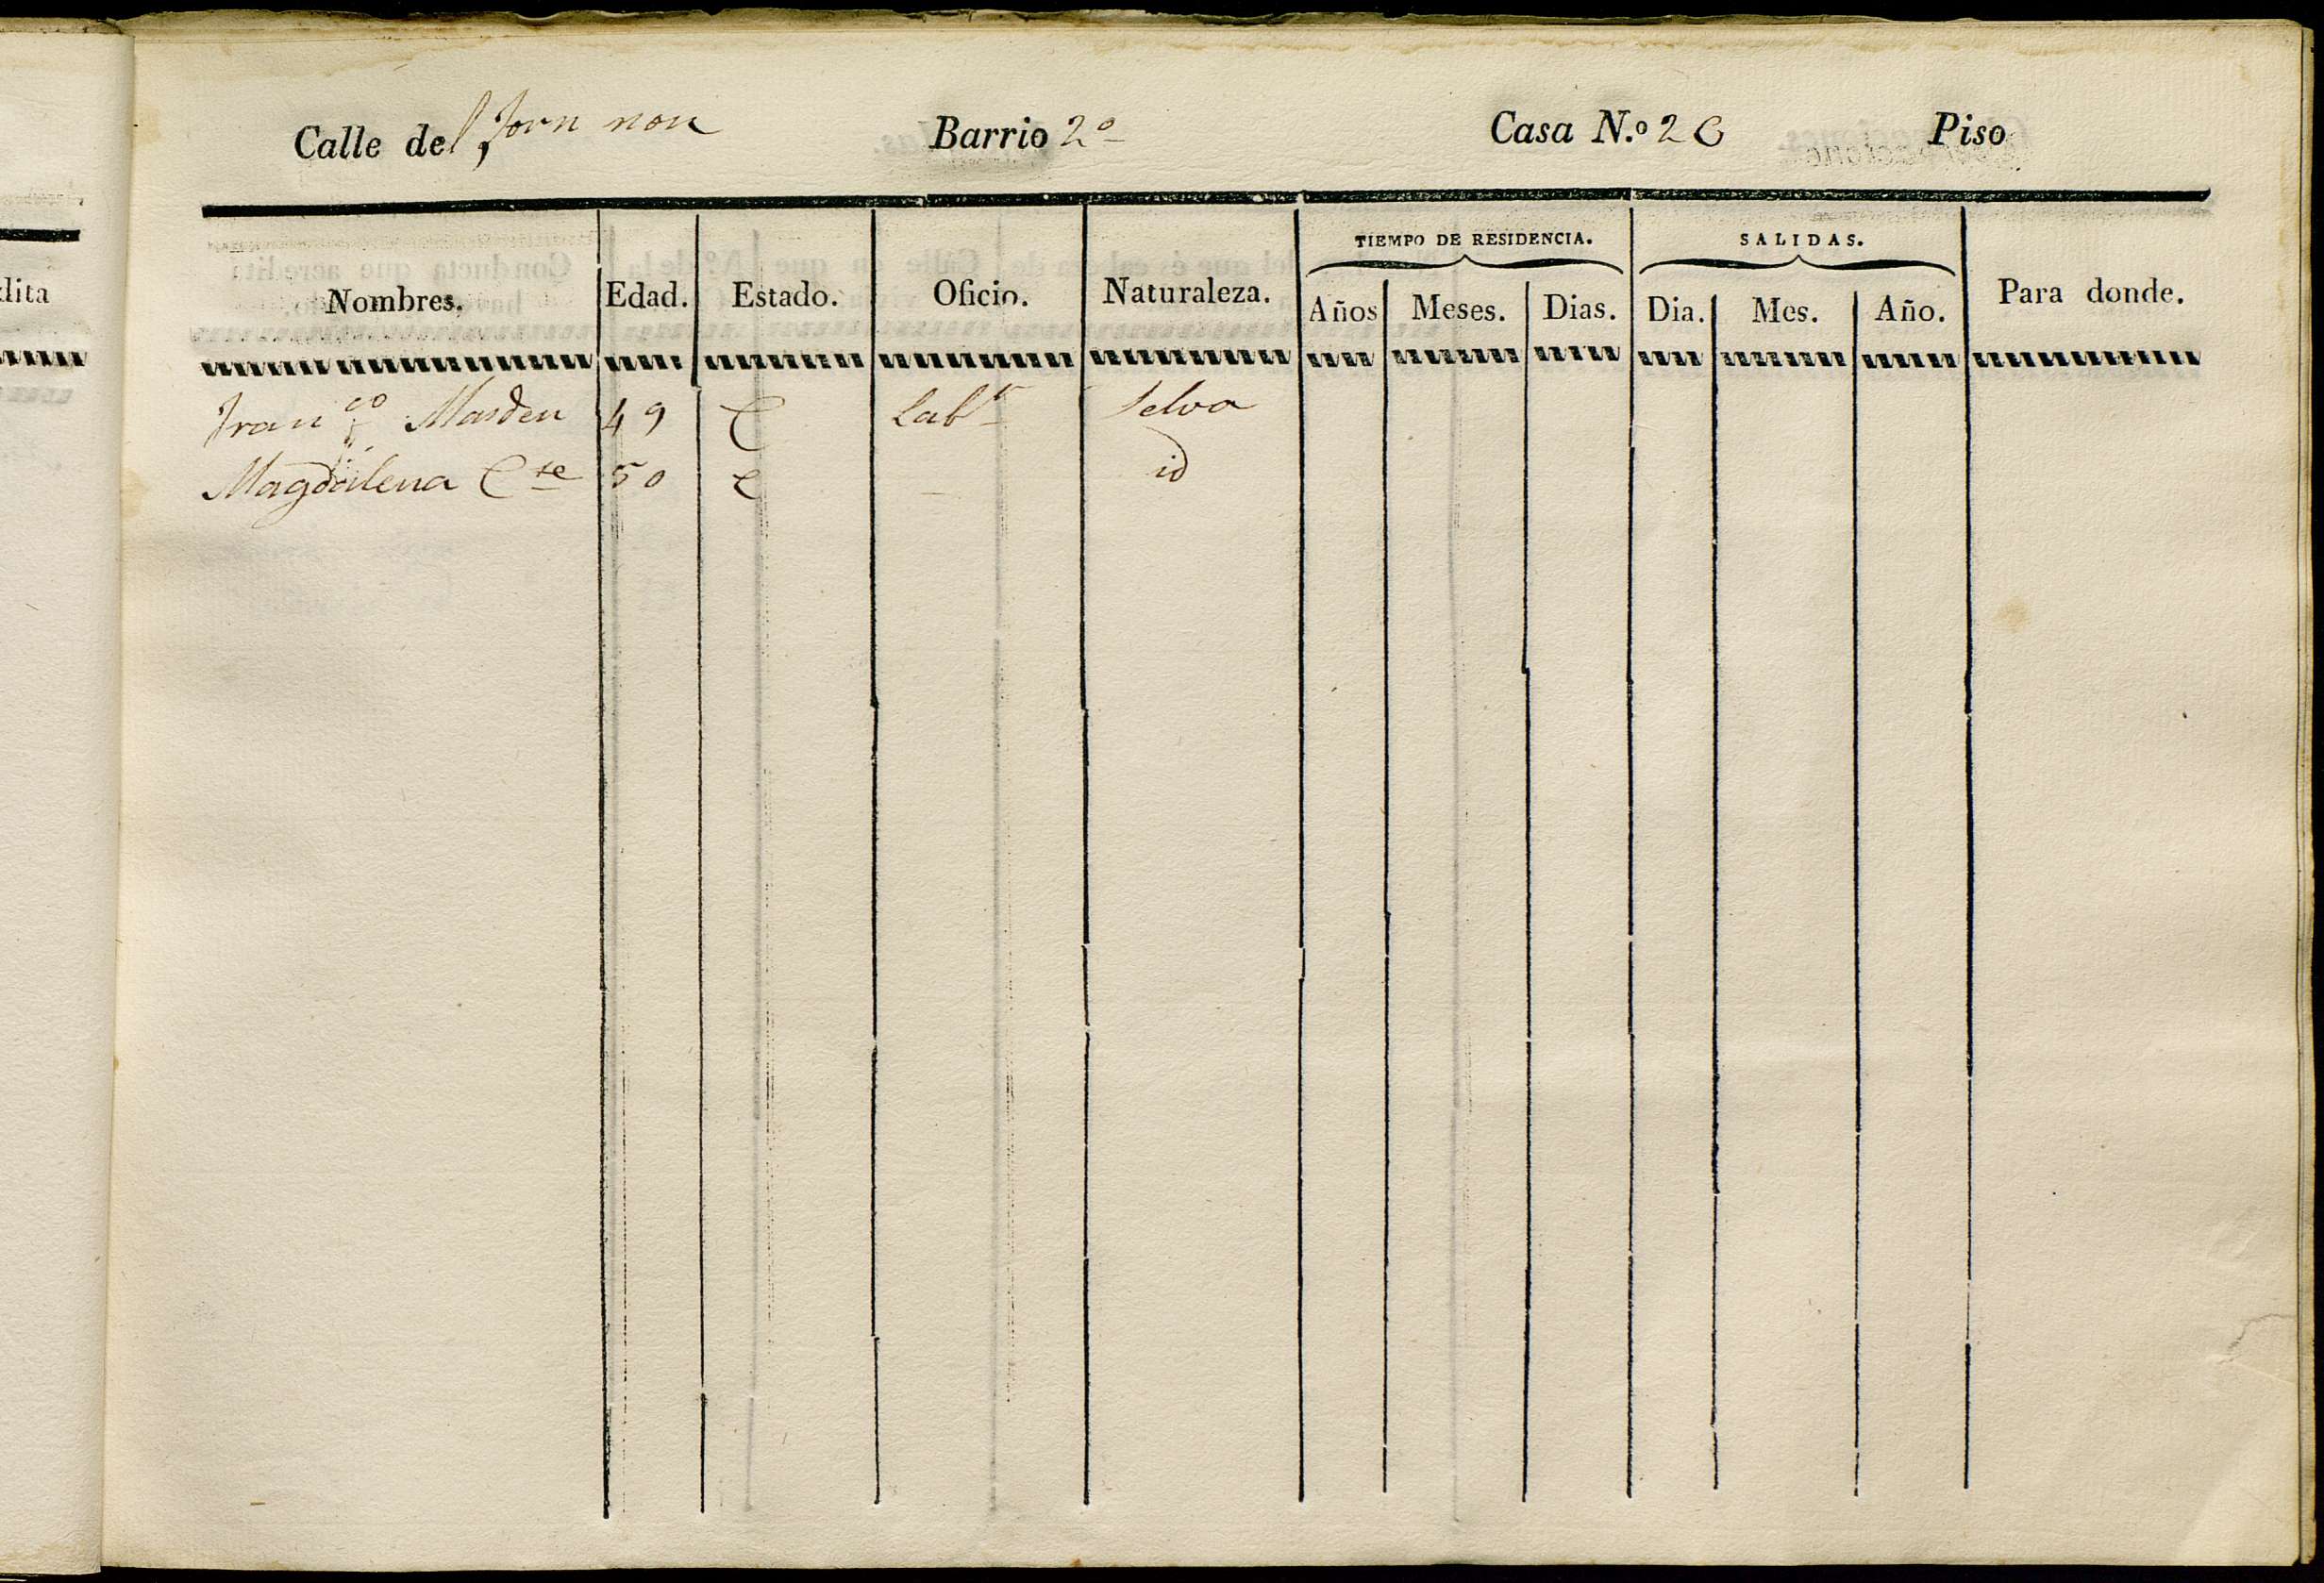 dita
Calle del Forn nou Barrio 2º Casa N.º 26 Piso
TIEMPO DE RESIDENCIA. SALIDAS.
Nombres. Edad. Estado. Oficio. Naturaleza. Años Meses. Dias. Dia. Mes. Año. Para donde.
Franco Masdeu 49 C Labr Selva
Magdalena Cte 50 C id